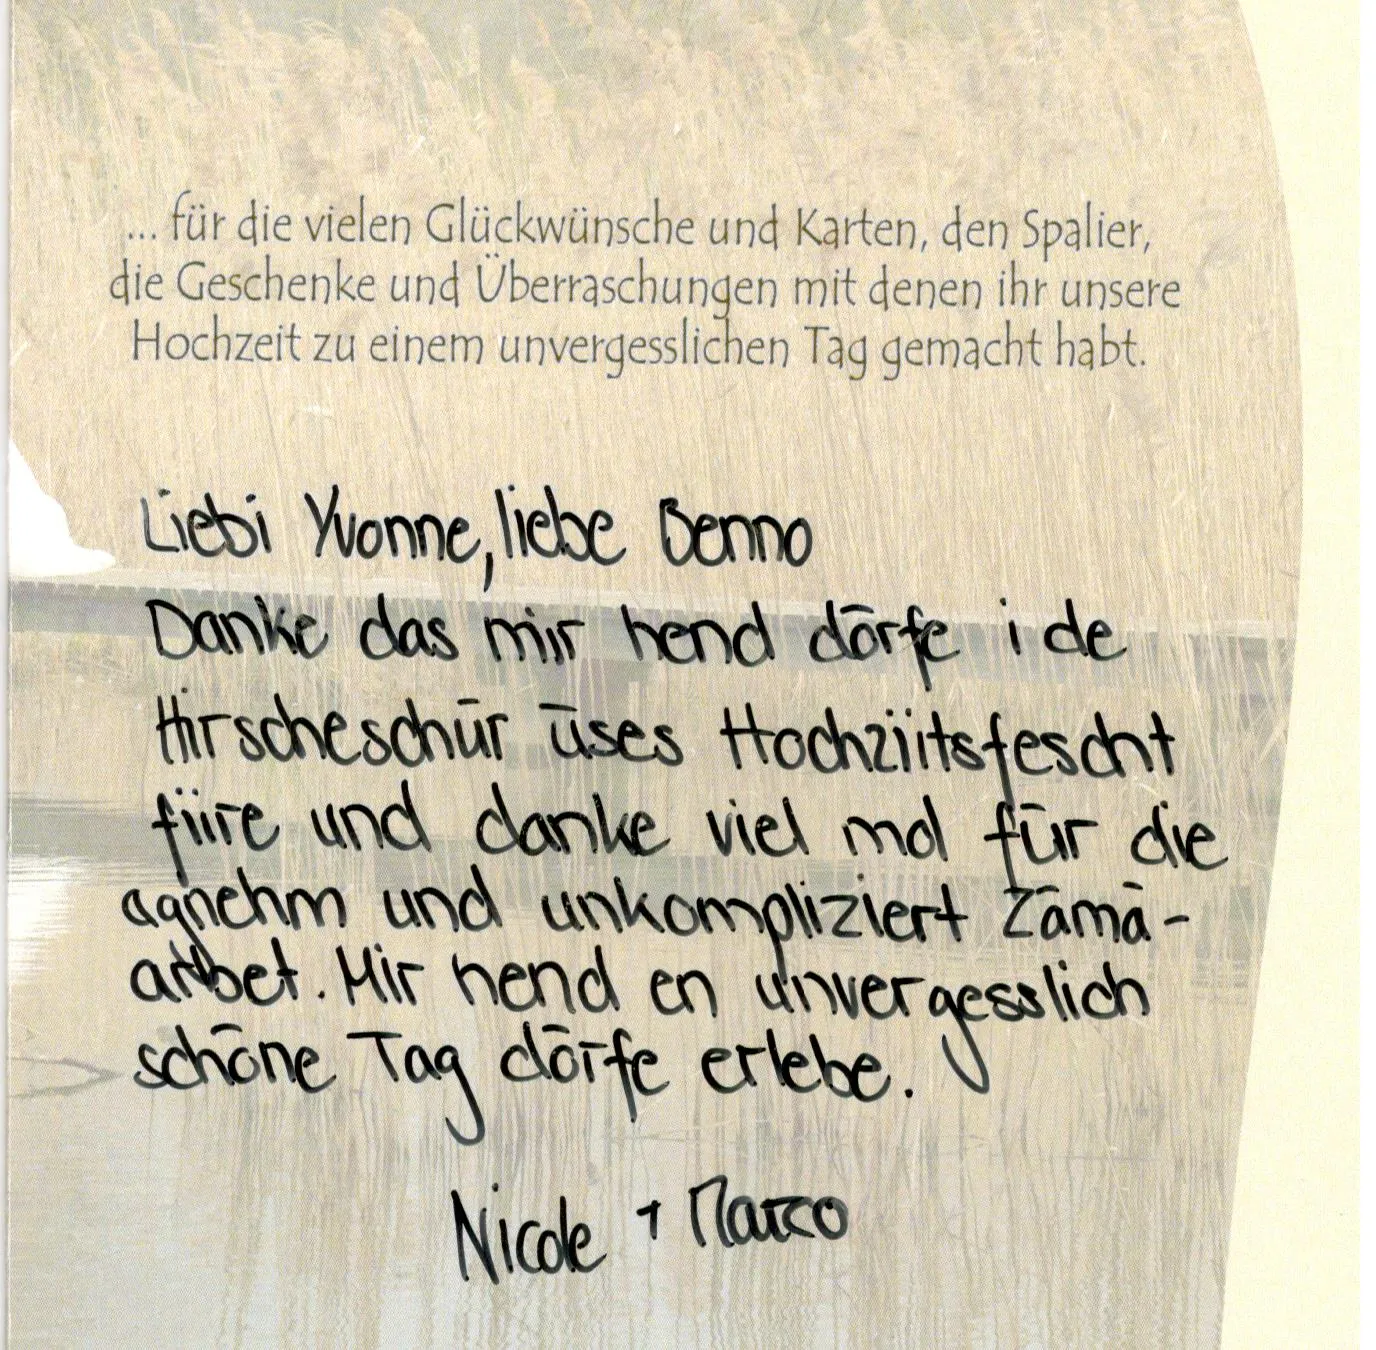 ... für die vielen Glückwünsche und Karten, den Spalier,
die Geschenke und Überraschungen mit denen ihr unsere
Hochzeit zu einem unvergesslichen Tag gemacht habt.
Liebi Yvonne, liebe Benno
Danke das mir hend dörfe i de
Hirscheschür üses Hochziitsfescht
fiire und danke viel mol für die
agnehm und unkompliziert Zämä-
arbet. Mir hend en unvergesslich
schöne Tag dörfe erlebe.
Nicole + Marco